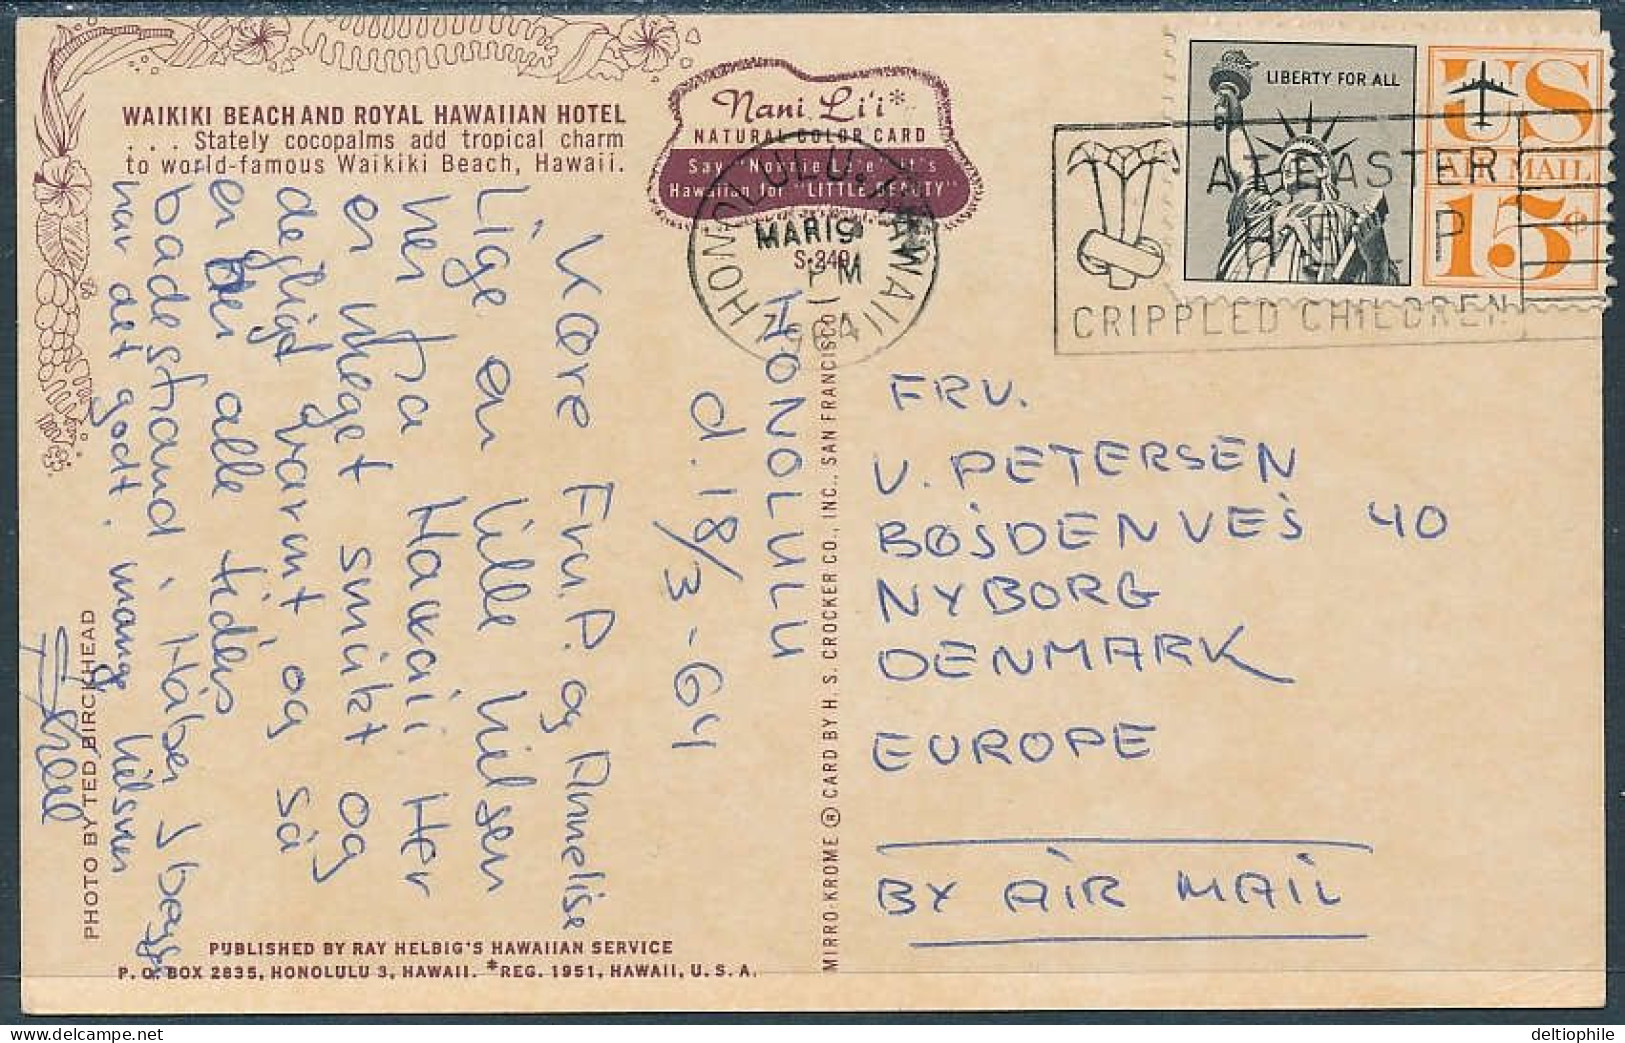 WAIKIKI BEACH AND ROYAL HAWAIIAN HOTEL
. . . Stately cocopalms add tropical charm
to world-famous Waikiki Beach, Hawaii.
Nani Li'i*
NATURAL COLOR CARD
Say "Noonie Lee" It's
Hawaiian for "LITTLE BEAUTY"
S-349
HONOLULU, HAWAII
MAR 19
PM
1964
LIBERTY FOR ALL
US
AIR MAIL
15¢
AT EASTER
HELP
CRIPPLED CHILDREN
HONOLULU
d. 18/3-64
Kære Fru P. og Annelise
Lige en lille hilsen
her fra Hawaii Her
er meget smukt og
dejligt varmt og så
er der alle tiders
badestrand, Håber I begge
har det godt. mange hilsner
FRU.
V. PETERSEN
BØJDENVEJ 40
NYBORG
DENMARK
EUROPE
BY AIR MAIL
PHOTO BY TED BIRCKHEAD
MIRRO-KROME ® CARD BY H. S. CROCKER CO., INC., SAN FRANCISCO 1
PUBLISHED BY RAY HELBIG'S HAWAIIAN SERVICE
P. O. BOX 2835, HONOLULU 3, HAWAII. *REG. 1951, HAWAII, U. S. A.
deltiophile